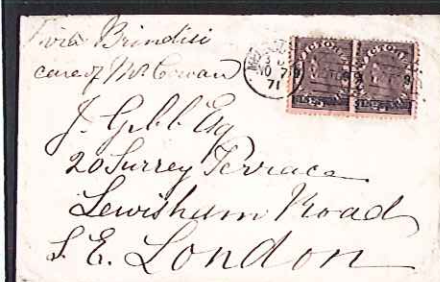 via Brindisi
care of Mr Cowan
J. Gibb Esq
20 Surrey Terrace
Lewisham Road
S. E. London
VICTORIA VICTORIA
NO 7
71